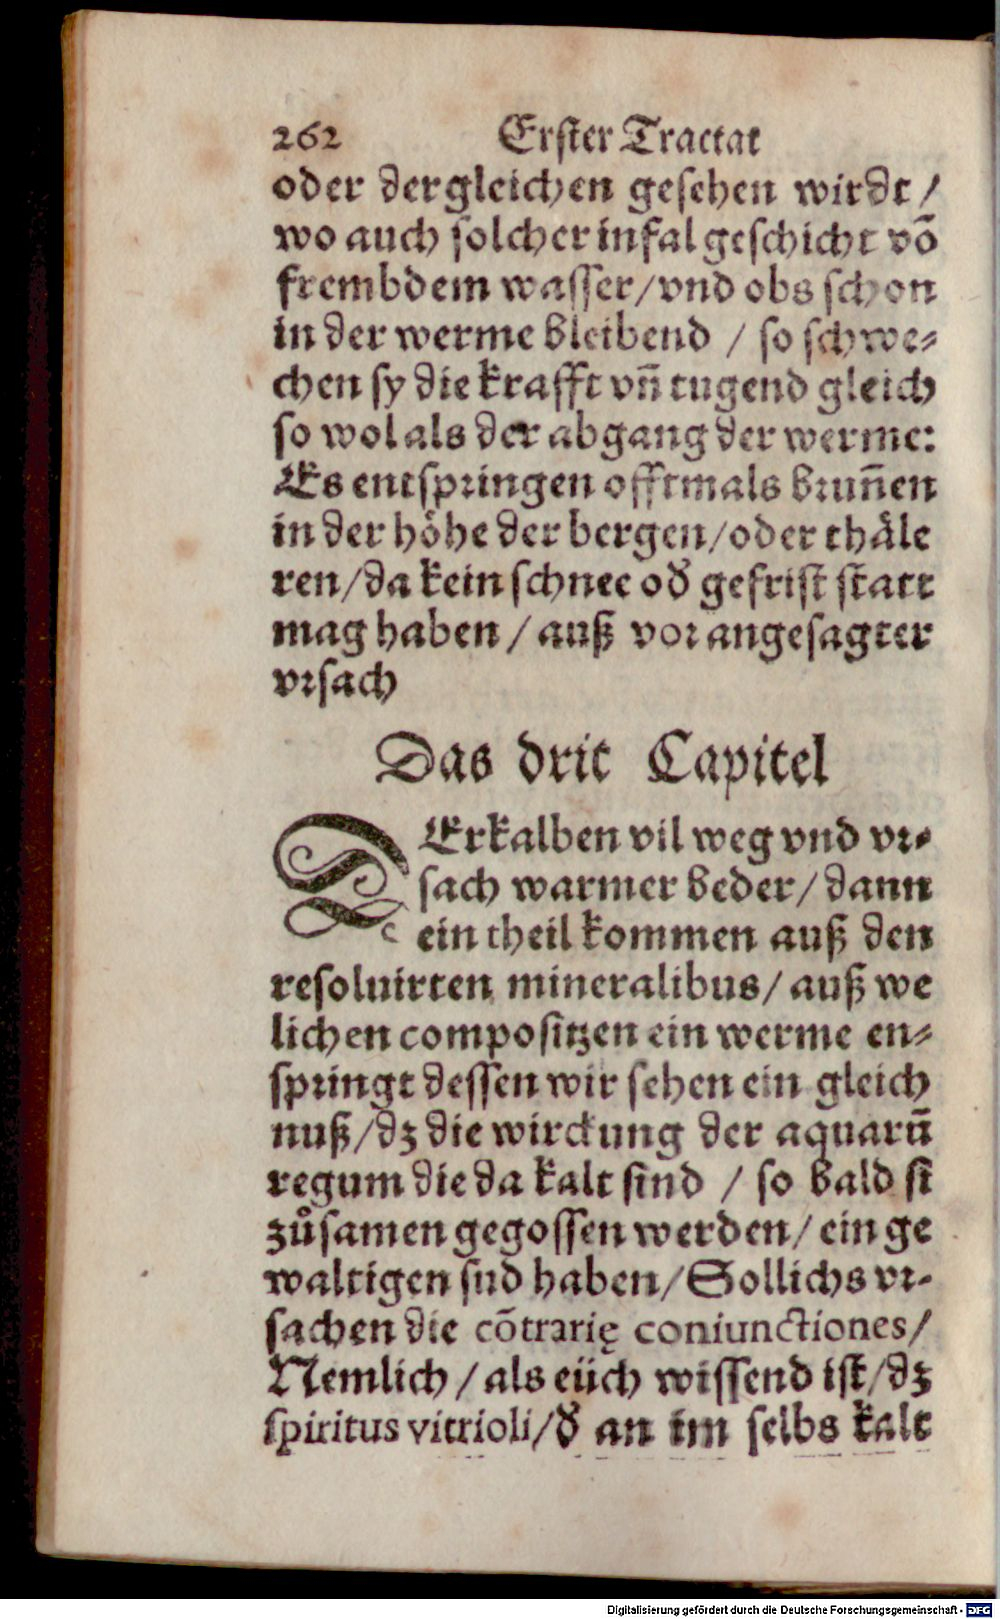 262 Erster Tractat
oder dergleichen gesehen wirdt /
wo auch solcher infal geschicht võ
frembdem wasser / vnd obs schon
in der werme bleibend / so schwe⸗
chen sy die krafft vñ tugend gleich
so wol als der abgang der werme:
Es entspringen offtmals brunñen
in der höhe der bergen / oder thäle
ren / da kein schnee oď gefrist statt
mag haben / auß vor angesagter
vrsach
Das drit Capitel
DErkalben vil weg vnd vr⸗
sach warmer beder / dann
ein theil kommen auß den
resoluirten mineralibus / auß we
lichen compositzen ein werme en⸗
springt dessen wir sehen ein gleich
nuß / dz die wirckung der aquarũ
regum die da kalt sind / so bald si
zůsamen gegossen werden / ein ge
waltigen sud haben / Sollichs vr⸗
sachen die cõtrarię coniunctiones /
Nemlich / als eüch wissend ist / dz
spiritus vitrioli / ď an im selbs kalt
Digitalisierung gefördert durch die Deutsche Forschungsgemeinschaft - DFG